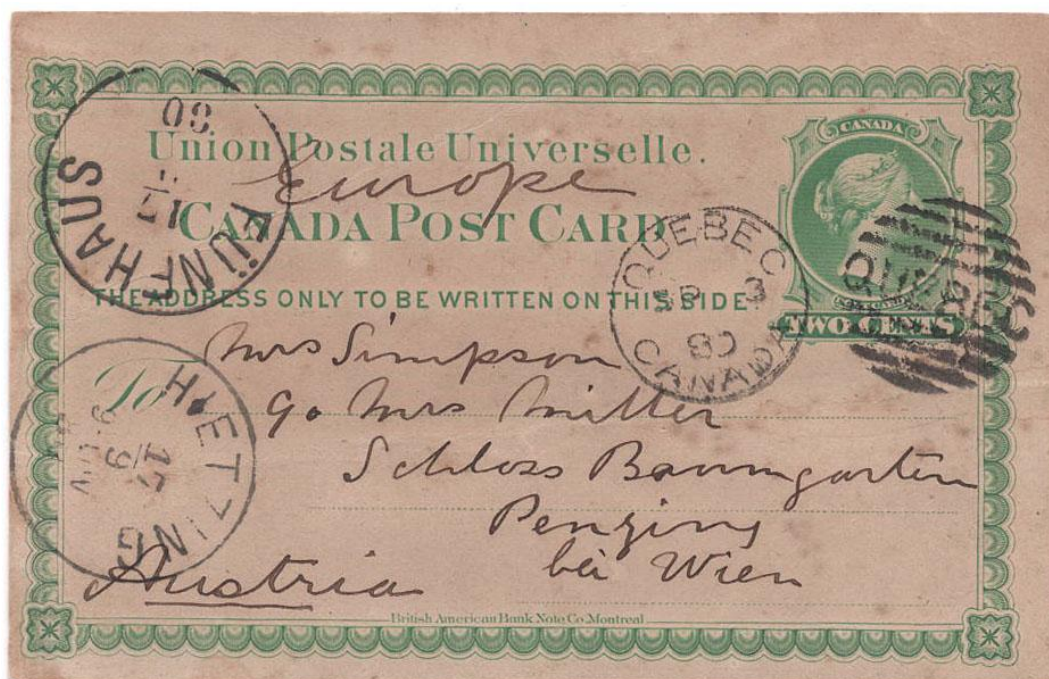 CANADA
Union Postale Universelle.
Europe
CANADA POST CARD
THE ADDRESS ONLY TO BE WRITTEN ON THIS SIDE
TWO CENTS
FÜNFHAUS
17
80
QUEBEC
SP 3
80
CANADA
QUEBEC
To
Mrs Simpson
c/o Mrs Miller
Schloss Baumgarten
Penzing
bei Wien
Austria
HIETZING
17/9
British American Bank Note Co. Montreal